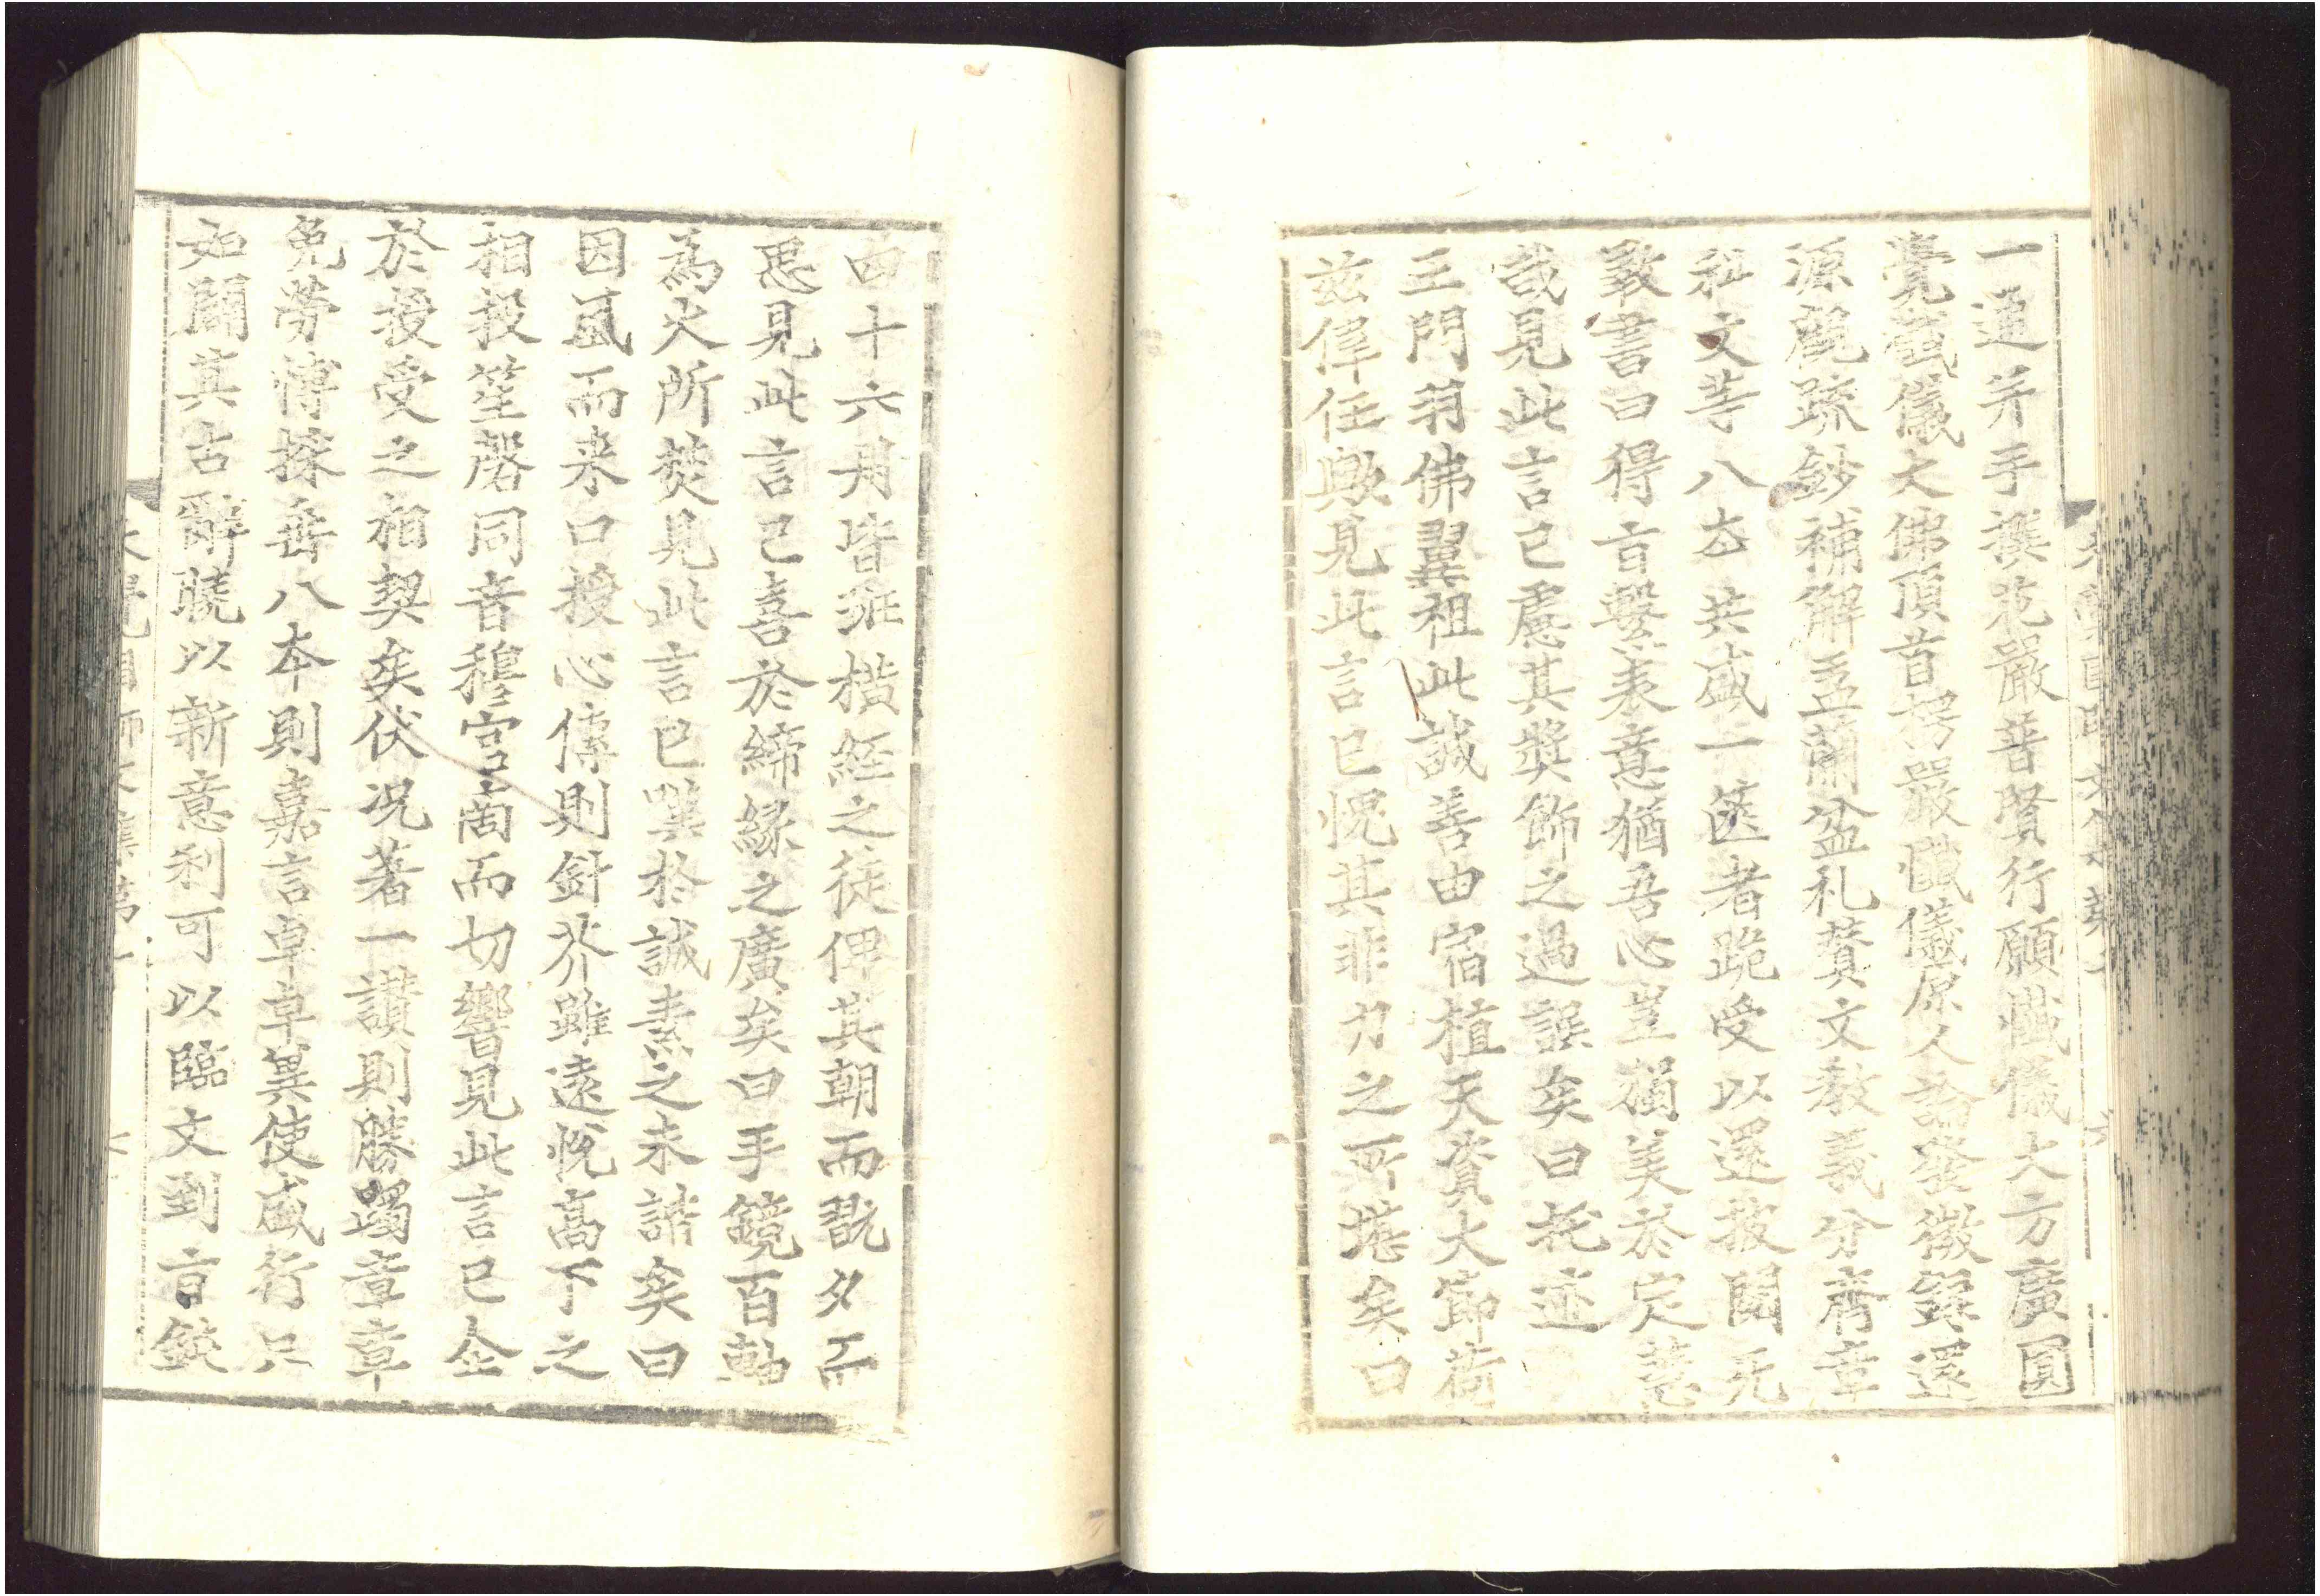 一通并手撰花嚴普賢行願懺儀大方廣圓
覺懺儀大佛頂首楞嚴懺儀原人論發微錄還
源觀疏鈔補解盂蘭盆礼贊文教義分齊章
科文等八本共盛一篋者跪受以還披閱无
斁書曰得旨繫表意猶吾心豈獨美於定慧
哉見此言已慮其奬飾之過誤矣曰托迹
王門羽佛翼祖此誠善由宿植天資大節荷
兹偉任歟見此言已愧其非力之所堪矣曰
四十六月皆班橫経之徒俾其朝而翫夕而
思見此言已喜於締緣之廣矣曰手鏡百軸
為火所焚見此言已嘆於誠素之未諧矣曰
因風而来口授心傳則針芥雖遠恱高下之
相投笙磬同音穆宮啇而切響見此言已金
於授受之相契矣伏况著一讃則勝躅章章
免勞博採舂八本則嘉言卓卓異使盛行只
如闢其古辭驍以新意利可以臨文到盲鋏